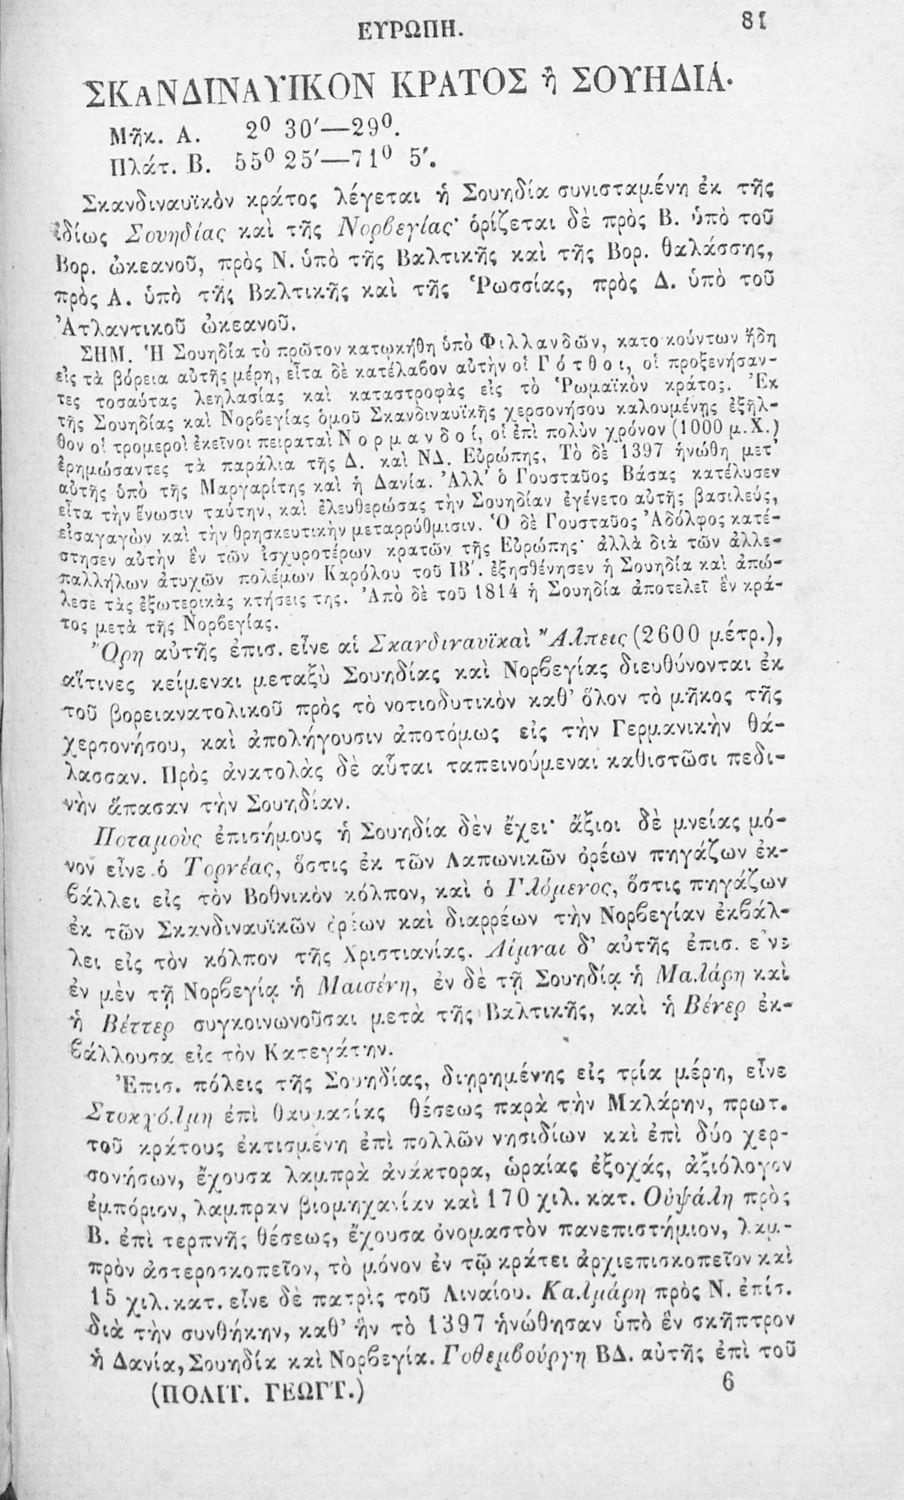 ΕΥΡΩΠΗ.
81
ΣΚΑΝΔΙΝΑΥΙΚΟΝ ΚΡΑΤΟΣ ἢ ΣΟΥΗΔΙΑ.
Μῆκ. Α. 2⁰ 30′—29⁰.
Πλάτ. Β. 55⁰ 25′—71⁰ 5′.
Σκανδιναυϊκὸν κράτος λέγεται ἡ Σουηδία συνισταμένη ἐκ τῆς
ἰδίως Σουηδίας καὶ τῆς Νορβεγίας· ὁρίζεται δὲ πρὸς Β. ὑπὸ τοῦ
Βορ. ὠκεανοῦ, πρὸς Ν. ὑπὸ τῆς Βαλτικῆς καὶ τῆς Βορ. θαλάσσης,
πρὸς Α. ὑπὸ τῆς Βαλτικῆς καὶ τῆς Ῥωσσίας, πρὸς Δ. ὑπὸ τοῦ
Ἀτλαντικοῦ ὠκεανοῦ.
ΣΗΜ. Ἡ Σουηδία τὸ πρῶτον κατῳκήθη ὑπὸ Φιλλανδῶν, κατοικούντων ἤδη
εἰς τὰ βόρεια αὐτῆς μέρη, εἶτα δὲ κατέλαβον αὐτὴν οἱ Γότθοι, οἱ προξενήσαν-
τες τοσαύτας λεηλασίας καὶ καταστροφὰς εἰς τὸ Ῥωμαϊκὸν κράτος. Ἐκ
τῆς Σουηδίας καὶ Νορβεγίας ὁμοῦ Σκανδιναυϊκῆς χερσονήσου καλουμένης ἐξῆλ-
θον οἱ τρομεροὶ ἐκεῖνοι πειραταὶ Νορμανδοί, οἱ ἐπὶ πολὺν χρόνον (1000 μ.Χ.)
ἐρημώσαντες τὰ παράλια τῆς Δ. καὶ ΝΔ. Εὐρώπης. Τὸ δὲ 1397 ἡνώθη μετ'
αὐτῆς ὑπὸ τῆς Μαργαρίτης καὶ ἡ Δανία. Ἀλλ' ὁ Γουσταῦος Βάσας κατέλυσεν
εἶτα τὴν ἕνωσιν ταύτην, καὶ ἐλευθερώσας τὴν Σουηδίαν ἐγένετο αὐτῆς βασιλεύς,
εἰσαγαγὼν καὶ τὴν θρησκευτικὴν μεταρρύθμισιν. Ὁ δὲ Γουσταῦος Ἀδόλφος κατέ-
στησεν αὐτὴν ἓν τῶν ἰσχυροτέρων κρατῶν τῆς Εὐρώπης· ἀλλὰ διὰ τῶν ἀλλε-
παλλήλων ἀτυχῶν πολέμων Καρόλου τοῦ ΙΒ′. ἐξησθένησεν ἡ Σουηδία καὶ ἀπώ-
λεσε τὰς ἐξωτερικὰς κτήσεις της. Ἀπὸ δὲ τοῦ 1814 ἡ Σουηδία ἀποτελεῖ ἓν κρά-
τος μετὰ τῆς Νορβεγίας.
Ὄρη αὐτῆς ἐπισ. εἶνε αἱ Σκανδιναυϊκαὶ Ἄλπεις (2600 μέτρ.),
αἵτινες κείμεναι μεταξὺ Σουηδίας καὶ Νορβεγίας διευθύνονται ἐκ
τοῦ βορειανατολικοῦ πρὸς τὸ νοτιοδυτικὸν καθ' ὅλον τὸ μῆκος τῆς
χερσονήσου, καὶ ἀπολήγουσιν ἀποτόμως εἰς τὴν Γερμανικὴν θά-
λασσαν. Πρὸς ἀνατολὰς δὲ αὗται ταπεινούμεναι καθιστῶσι πεδι-
νὴν ἅπασαν τὴν Σουηδίαν.
Ποταμοὺς ἐπισήμους ἡ Σουηδία δὲν ἔχει· ἄξιοι δὲ μνείας μό-
νον εἶνε ὁ Τορνέας, ὅστις ἐκ τῶν Λαπωνικῶν ὀρέων πηγάζων ἐκ-
βάλλει εἰς τὸν Βοθνικὸν κόλπον, καὶ ὁ Γλόμενος, ὅστις πηγάζων
ἐκ τῶν Σκανδιναυϊκῶν ὀρέων καὶ διαρρέων τὴν Νορβεγίαν ἐκβάλ-
λει εἰς τὸν κόλπον τῆς Χριστιανίας. Λίμναι δ' αὐτῆς ἐπισ. εἶνε
ἐν μὲν τῇ Νορβεγίᾳ ἡ Μαισένη, ἐν δὲ τῇ Σουηδίᾳ ἡ Μαλάρη καὶ
ἡ Βέττερ συγκοινωνοῦσαι μετὰ τῆς Βαλτικῆς, καὶ ἡ Βένερ ἐκ-
βάλλουσα εἰς τὸν Κατεγάτην.
Ἐπισ. πόλεις τῆς Σουηδίας, διῃρημένης εἰς τρία μέρη, εἶνε
Στοκχόλμη ἐπὶ θαυμασίας θέσεως παρὰ τὴν Μαλάρην, πρωτ.
τοῦ κράτους ἐκτισμένη ἐπὶ πολλῶν νησιδίων καὶ ἐπὶ δύο χερ-
σονήσων, ἔχουσα λαμπρὰ ἀνάκτορα, ὡραίας ἐξοχάς, ἀξιόλογον
ἐμπόριον, λαμπρὰν βιομηχανίαν καὶ 170 χιλ. κατ. Οὐψάλη πρὸς
Β. ἐπὶ τερπνῆς θέσεως, ἔχουσα ὀνομαστὸν πανεπιστήμιον, λαμ-
πρὸν ἀστεροσκοπεῖον, τὸ μόνον ἐν τῷ κράτει ἀρχιεπισκοπεῖον καὶ
15 χιλ. κατ. εἶνε δὲ πατρὶς τοῦ Λιναίου. Καλμάρη πρὸς Ν. ἐπίσ.
διὰ τὴν συνθήκην, καθ' ἣν τὸ 1397 ἡνώθησαν ὑπὸ ἓν σκῆπτρον
ἡ Δανία, Σουηδία καὶ Νορβεγία. Γοθεμβούργη ΒΔ. αὐτῆς ἐπὶ τοῦ
(ΠΟΛΙΤ. ΓΕΩΓΓ.)
6